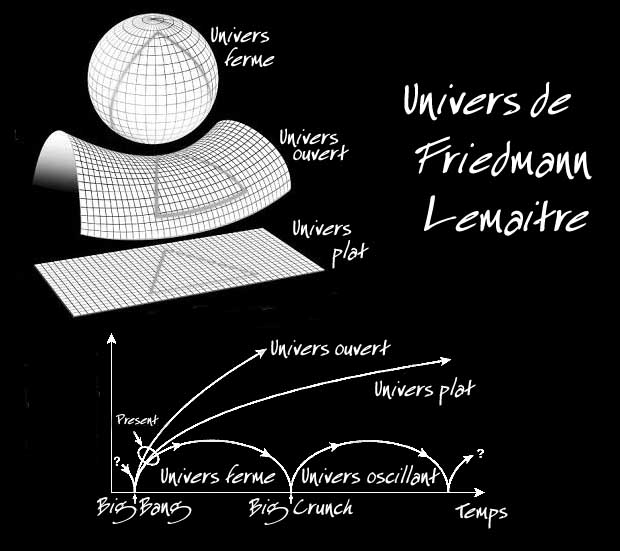 Univers
ferme
Univers de
Friedmann
Lemaitre
Univers
ouvert
Univers
plat
Univers ouvert
Univers plat
Present
?
?
Univers ferme
Univers oscillant
Big Bang
Big Crunch
Temps